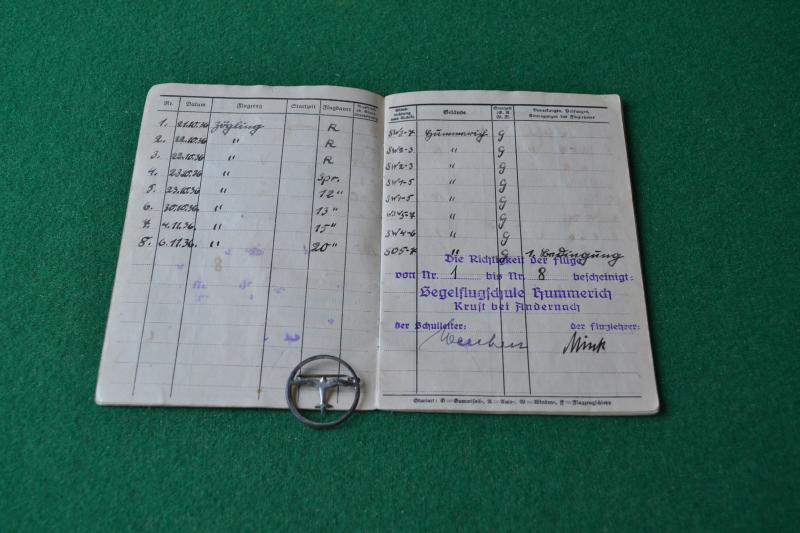 Nr. Datum Flugzeug Startzeit Flugdauer
1. 21.10.36 Zögling R
2. 22.10.36 " R
3. 22.10.36 " R
4. 23.10.36 " Spr.
5. 23.10.36 " 12"
6. 30.10.36. " 13"
7. 4.11.36. " 15"
8. 6.11.36. " 20"
Gelände Startart
Bemerkungen, Prüfungen,
Eintragungen der Flugleiter
Hummerich G
SW2-3 " G
SW2-3 " G
SW1-5 " G
SW1-5 " G
" G
SW4-6 " G
SO5-7 " G 1. Bedingung
Die Richtigkeit der Flüge
von Nr. 1 bis Nr. 8 bescheinigt:
Segelflugschule Hummerich
Kruft bei Andernach
der Schulleiter: der Fluglehrer:
Mink
Startart: G = Gummiseil-, A = Auto-, W = Winden-, F = Flugzeugschlepp